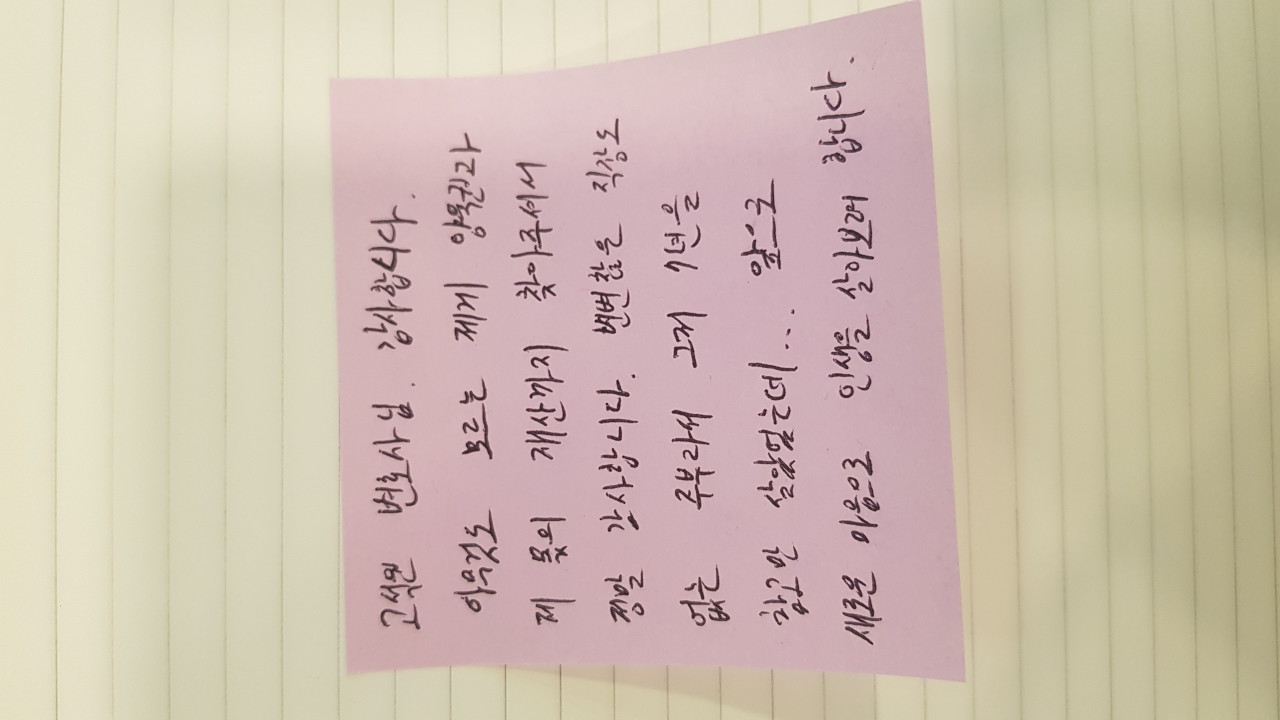 고석민 변호사님. 감사합니다.
아무것도 모르는 제게 양육권과
제 몫의 재산까지 찾아주셔서
정말 감사합니다. 변변찮은 직장도
없는 주부라서 그저 7년을
참고만 살았었는데... 앞으로
새로운 마음으로 인생을 살아보려 합니다.